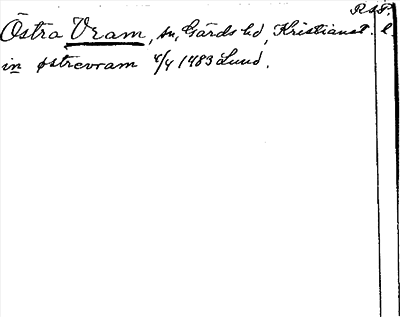 R s P.
Östra Vram, sn, Gärds hd, Kristianst. l.
in østrevram 4/4 1483 Lund.